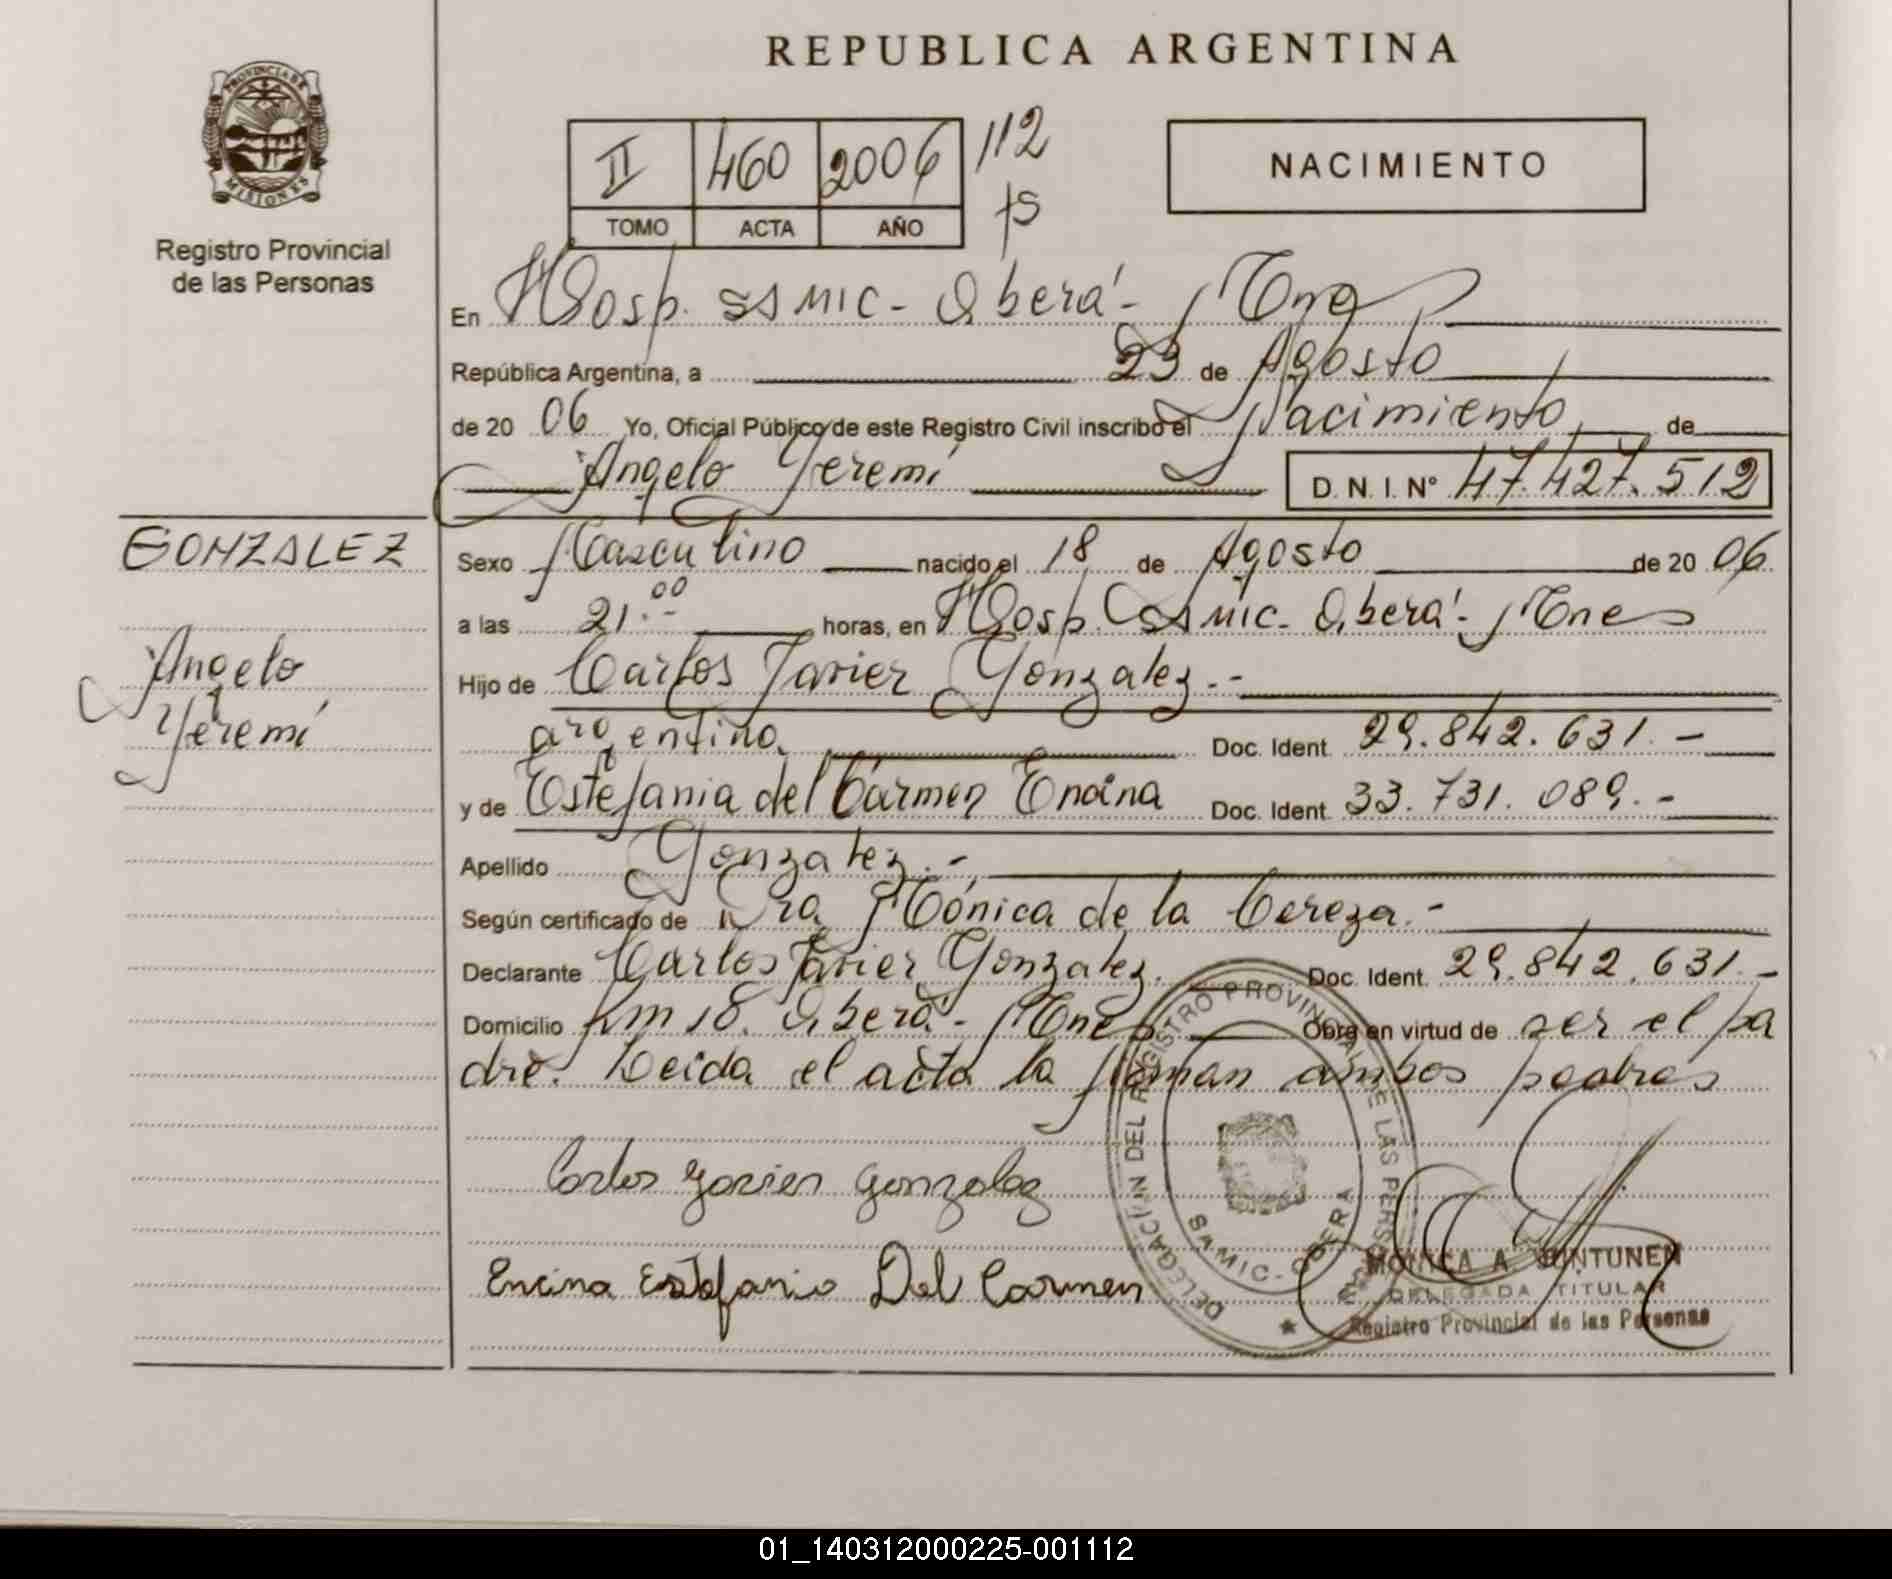 REPUBLICA ARGENTINA
PROVINCIA DE
MISIONES
Registro Provincial
de las Personas
II 460 2006 112
TOMO ACTA AÑO
NACIMIENTO
En Hosp. SAMIC - Oberá - Mnes
República Argentina, a 23 de Agosto
de 20 06 Yo, Oficial Público de este Registro Civil inscribo el Nacimiento de
Angelo Yeremí D.N.I. Nº 47.427.512
GONZALEZ
Angelo
Yeremí
Sexo Masculino nacido el 18 de Agosto de 20 06
a las 21.00 horas, en Hosp. SAMIC - Oberá - Mnes
Hijo de Carlos Javier Gonzalez.-
argentino Doc. Ident. 29.842.631.-
y de Estefania del Carmen Encina Doc. Ident. 33.731.089.-
Apellido Gonzalez.-
Según certificado de Dra Mónica de la Cereza.-
Declarante Carlos Javier Gonzalez. Doc. Ident. 29.842.631.-
Domicilio Km 18. Oberá - Mnes Obra en virtud de ser el pa
dre. Leida el acta la firman ambos padres
Carlos Javier Gonzalez
Encina Estefania Del Carmen
DELEGACIÓN DEL REGISTRO PROVINCIAL DE LAS PERSONAS
SAMIC - OBERA
MONICA A.
DELEGADA TITULAR
Registro Provincial de las Personas
01_140312000225-001112